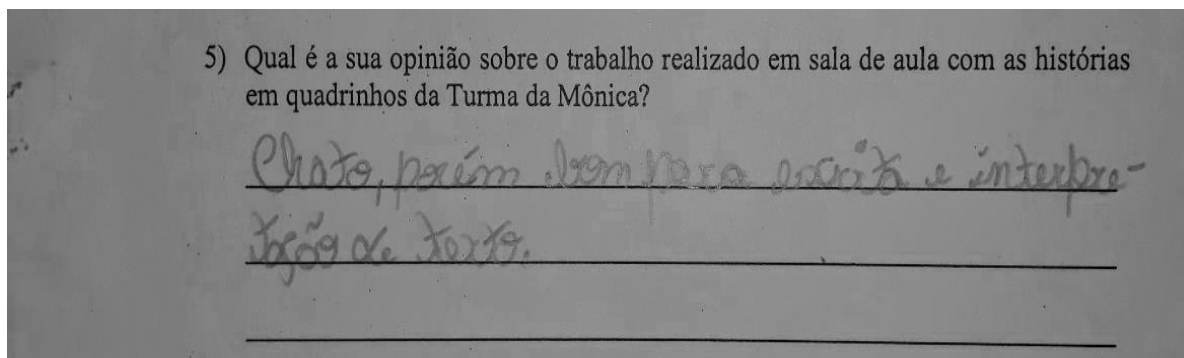 5) Qual é a sua opinião sobre o trabalho realizado em sala de aula com as histórias
em quadrinhos da Turma da Mônica?
Chato, porém bom para escrita e interpre-
tação de texto.